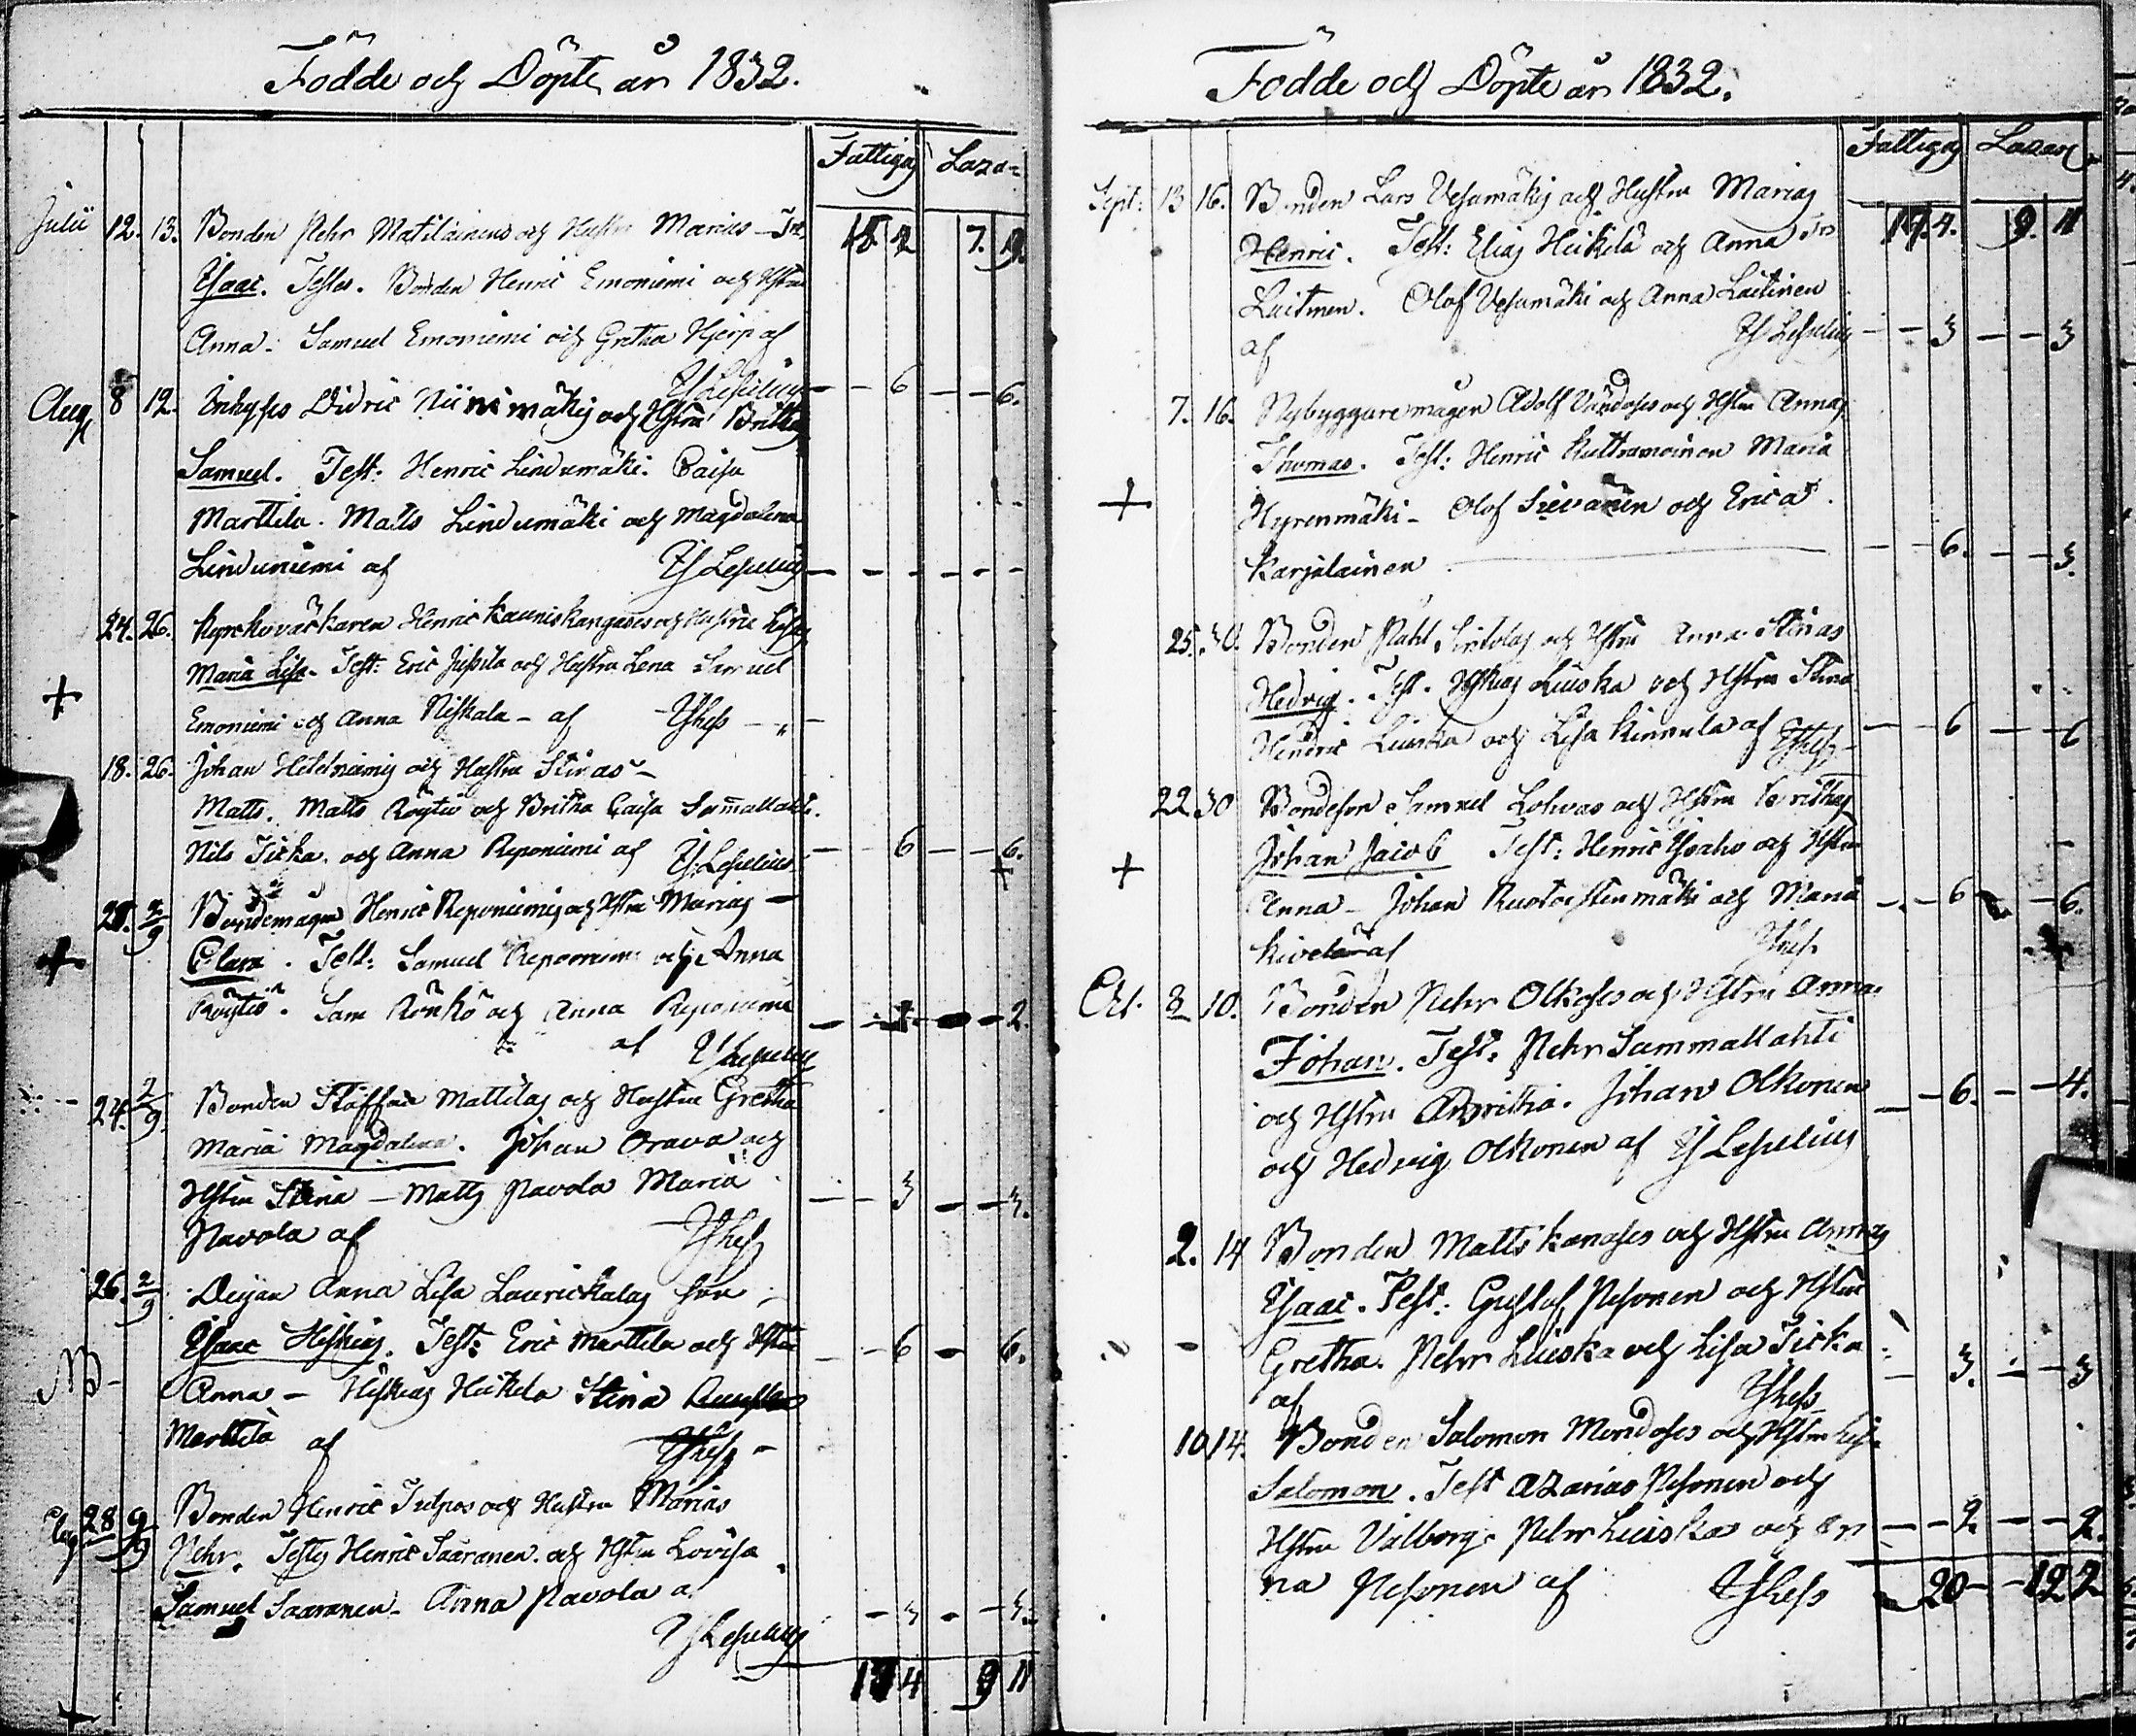 Födde och Döpte år 1832.
Fattiga Laza-
Julii 12. 13. Bonden Pehr Matilainens och Hustru Marias
15 2 7. 9.
Isaac. Testes. Bonden Henric Emoniemi och Hstru
Anna. Samuel Emoniemi och Gretha Hjerp af
Is Lesselius - - 6 - - 6.
Aug 8 12. Inhyses Didric Niinimäkis och Hstru Brithas
Samuel. Test: Henric Lindumäki. Caisa
Marttila. Matts Lindumäki och Magdalena
Linduniemi af Is Lesselius - - - - - -
24. 26. Kyrkovärkaren Henric Kauniskangases och Hustru Lisas
Maria Lisa. Test: Eric Jussila och Hustru Lena Samuel
+
Emoniemi och Anna Niskala - af IsLess
18. 26. Johan Hetehniemis och Hustru Stinas -
Matts. Matts Röytiö och Britha Caisa Sammallahti.
Nils Ticka och Anna Reponiemi af Is. Lesselius - - 6 - - 6.
+
2/9 Bondemågen Henric Reponiemis och Hstru Marias -
+
Clara. Test: Samuel Reponiemi och Anna
Röytiö. Sam Rönkö och Anna Reponiemi
- - - - 2.
af Is Lesselius
24. 2/9. Bonden Staffan Mattilas och Hustru Gretha
Maria Magdalena. Johan Orava och
Hstru Stina - Matts Pavola Maria
- - 3 - - 3.
Pavola af IsLess
26. 2/9 Deijan Anna Lisa Laurickalas
Isaac Heskias. Test: Eric Marttila och Hstru
- - 6 - 6.
Anna - Heskias Heikela Stina
Marttila af IsLess -
Aug 28 9/9 Bonden Henric Tulpos och Hustru Marias
Pehr. Testes Henric Saaranen och Hstru Lovisa
Samuel Saaranen - Anna Pavola a
- 3 - - 3.
Is Lesselius
17 4 9 11
Födde och Döpte år 1832.
Fattiga Lazar
Sept: 13 16. Bonden Lars Vesamäkis och Hustru Marias
17. 4. 9. 11
Henric. Test: Elias Heikelä och Anna
Laitinen. Olof Vesamäki och Anna Laitinen
af Is Lesselius - - 3 - - 3
7. 16. Nybyggaremågen Adolf Vändoses och Hstru Annas
Thomas. Test: Henric Kuttramoinen Maria
+
Hyrenmäki - Olof Sievänen och Erica
Karjalainen - - 6. - - 3.
25. 30. Bonden Påhl Sirvolas och Hstru Anna Stinas
Hedvig. Test. Heskias Luiska och Hstru Stina
Hendric Luiska och Lisa Kinnula af IsLess - - 6 - - 6
22 30 Bondeson Samuel Lohvas och Hstru Brithas
Johan Jacob Test: Henric Yoaho och Hstru
+
Anna - Johan Ruotoistenmäki och Maria
- - 6 - 6.
Kivelä af IsLess
Oct. 8 10. Bonden Pehr Olkoses och Hstru Annas
Johan. Test: Pehr Sammallahti
och Hstru Britha. Johan Olkonen
- - 6. - - 4.
och Hedvig Olkonen af Is Lesselius
2. 14 Bonden Matts Kanases och Hstru Annas
Isaac. Test: Gustaf Pesonen och Hstru
Gretha. Pehr Luiska och Lisa Ticka
- 3. - - 3
af IsLess
10 14. Bonden Salomon Mondoses och Hstru Lisas
Salomon. Test Azarias Pesonen och
Hstru Valborg. Pehr Luiska och An
- - 2 - - 2.
na Pesonen af IsLess
20 - 12 2